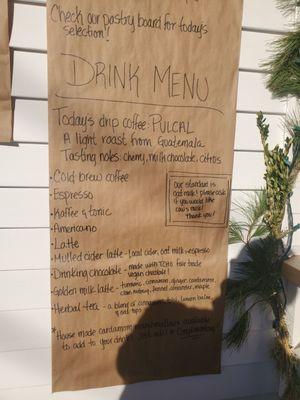 Check our pastry board for today's
selection!
DRINK MENU
Today's drip coffee: PULCAL
A light roast from Guatemala
Tasting notes: cherry, milk chocolate, citrus
• Cold brew coffee
• Espresso
• Koffee & tonic
• Americano
• Latte
Our standard is
oat milk! please ask
if you would like
cow's milk!
Thank you!
• Mulled cider latte - local cider, oat milk, espresso
• Drinking chocolate - made with TCHO fair trade
vegan chocolate!
• Golden milk latte - turmeric, cinnamon, ginger, cardamom,
fennel, coriander, maple
• Herbal tea - a blend of cinnamon, lemon balm,
*House made cardamom marshmallows available
to add to your drink! Just ask! Complimentary